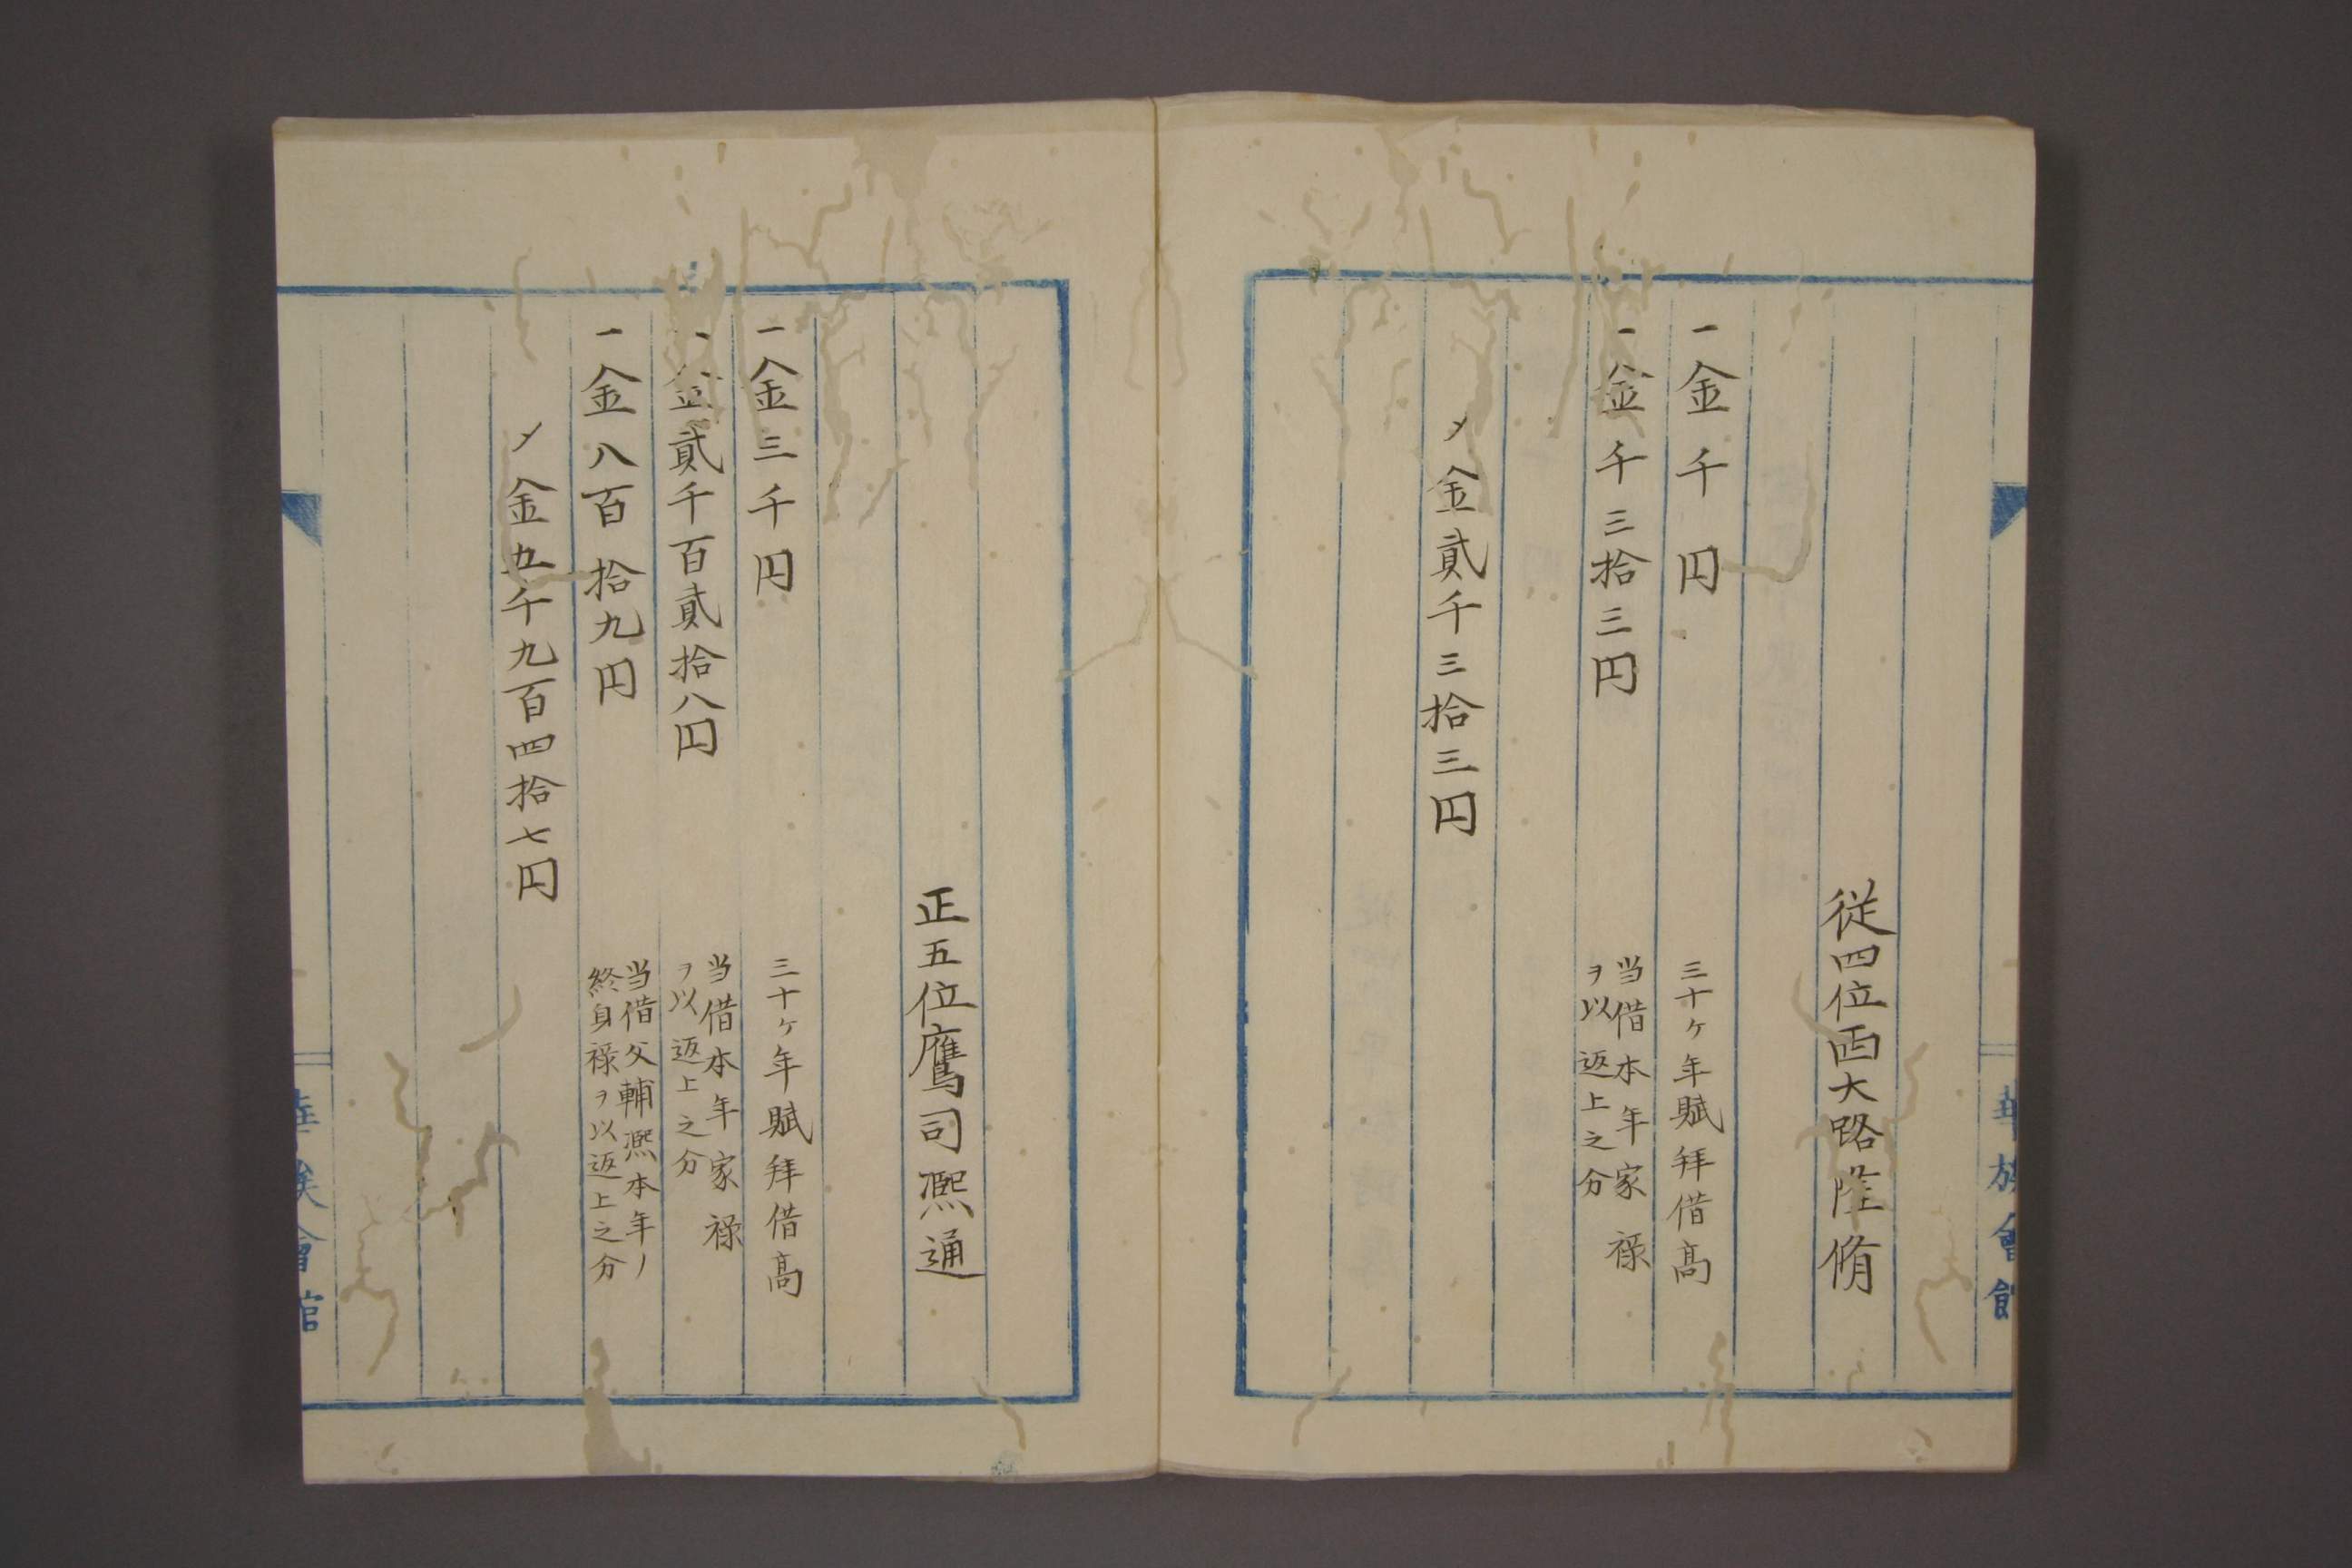 従四位西大路隆脩
一金千円 三十ヶ年賦拝借高
一金千三拾三円 当借本年家禄
ヲ以返上之分
〆金貳千三拾三円
正五位鷹司熈通
一金三千円 三十ヶ年賦拝借高
一金貳千百貳拾八円 当借本年家禄
ヲ以返上之分
一金八百拾九円 当借父輔熈本年ノ
終身禄ヲ以返上之分
〆金五千九百四拾七円
華族會館